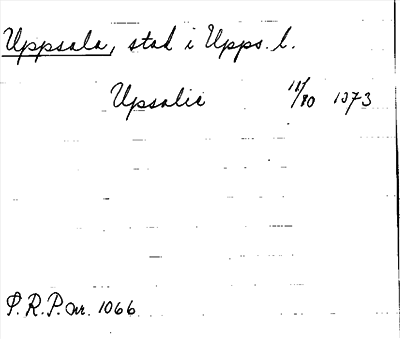 Uppsala, stad i Upps. l.
Upsalie 18/10 1373
P.R.P. nr. 1066